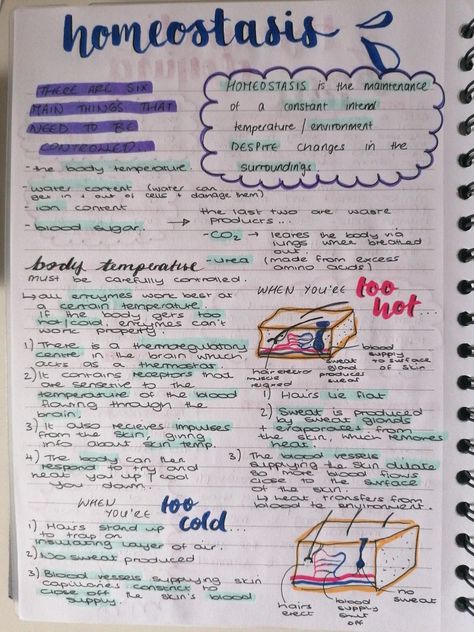 homeostasis
THERE ARE SIX
MAIN THINGS THAT
NEED TO BE
CONTROLLED
HOMEOSTASIS is the maintenance
of a constant
temperature / environment
DESPITE changes in the
surroundings.
- the body temperature
- water content (water can
get in + out of cells + damage them)
- ion content
- blood sugar
→ the last two are waste
products...
- CO2 → leaves the body via
lungs when breathed
out
- urea (made from excess
amino acids)
body temperature
must be carefully controlled.
↳ all enzymes work best at
a certain temperature.
If the body gets too
hot/cold enzymes can't
work properly.
1) There is a thermoregulatory
centre in the brain which
acts as a thermostat.
2) It contains receptors that
are sensitive to the
temperature of the blood
flowing through the
brain.
3) It also recieves impulses
from the skin, giving
info about skin temp.
4) The body can then
respond to try and
heat you up / cool
you down.
WHEN YOU'RE too
hot...
hair erector
muscle
sweat
gland
produces
sweat
blood
supply
to surface
of skin
1) Hairs lie flat
2) Sweat is produced
by sweat glands
+ evaporates from
the skin, which removes
heat.
3) The blood vessels
supplying the skin dilate
so more blood flows
close to the surface
of the skin.
↳ heat transfers from
blood to environment.
WHEN
YOU'RE too
cold...
1) Hairs stand up
to trap an
insulating layer of air.
2) No sweat produced
3) Blood vessels supplying skin
capillaries constrict to
close off the skin's blood
supply.
hairs
erect
blood
supply
shut
off
no
sweat